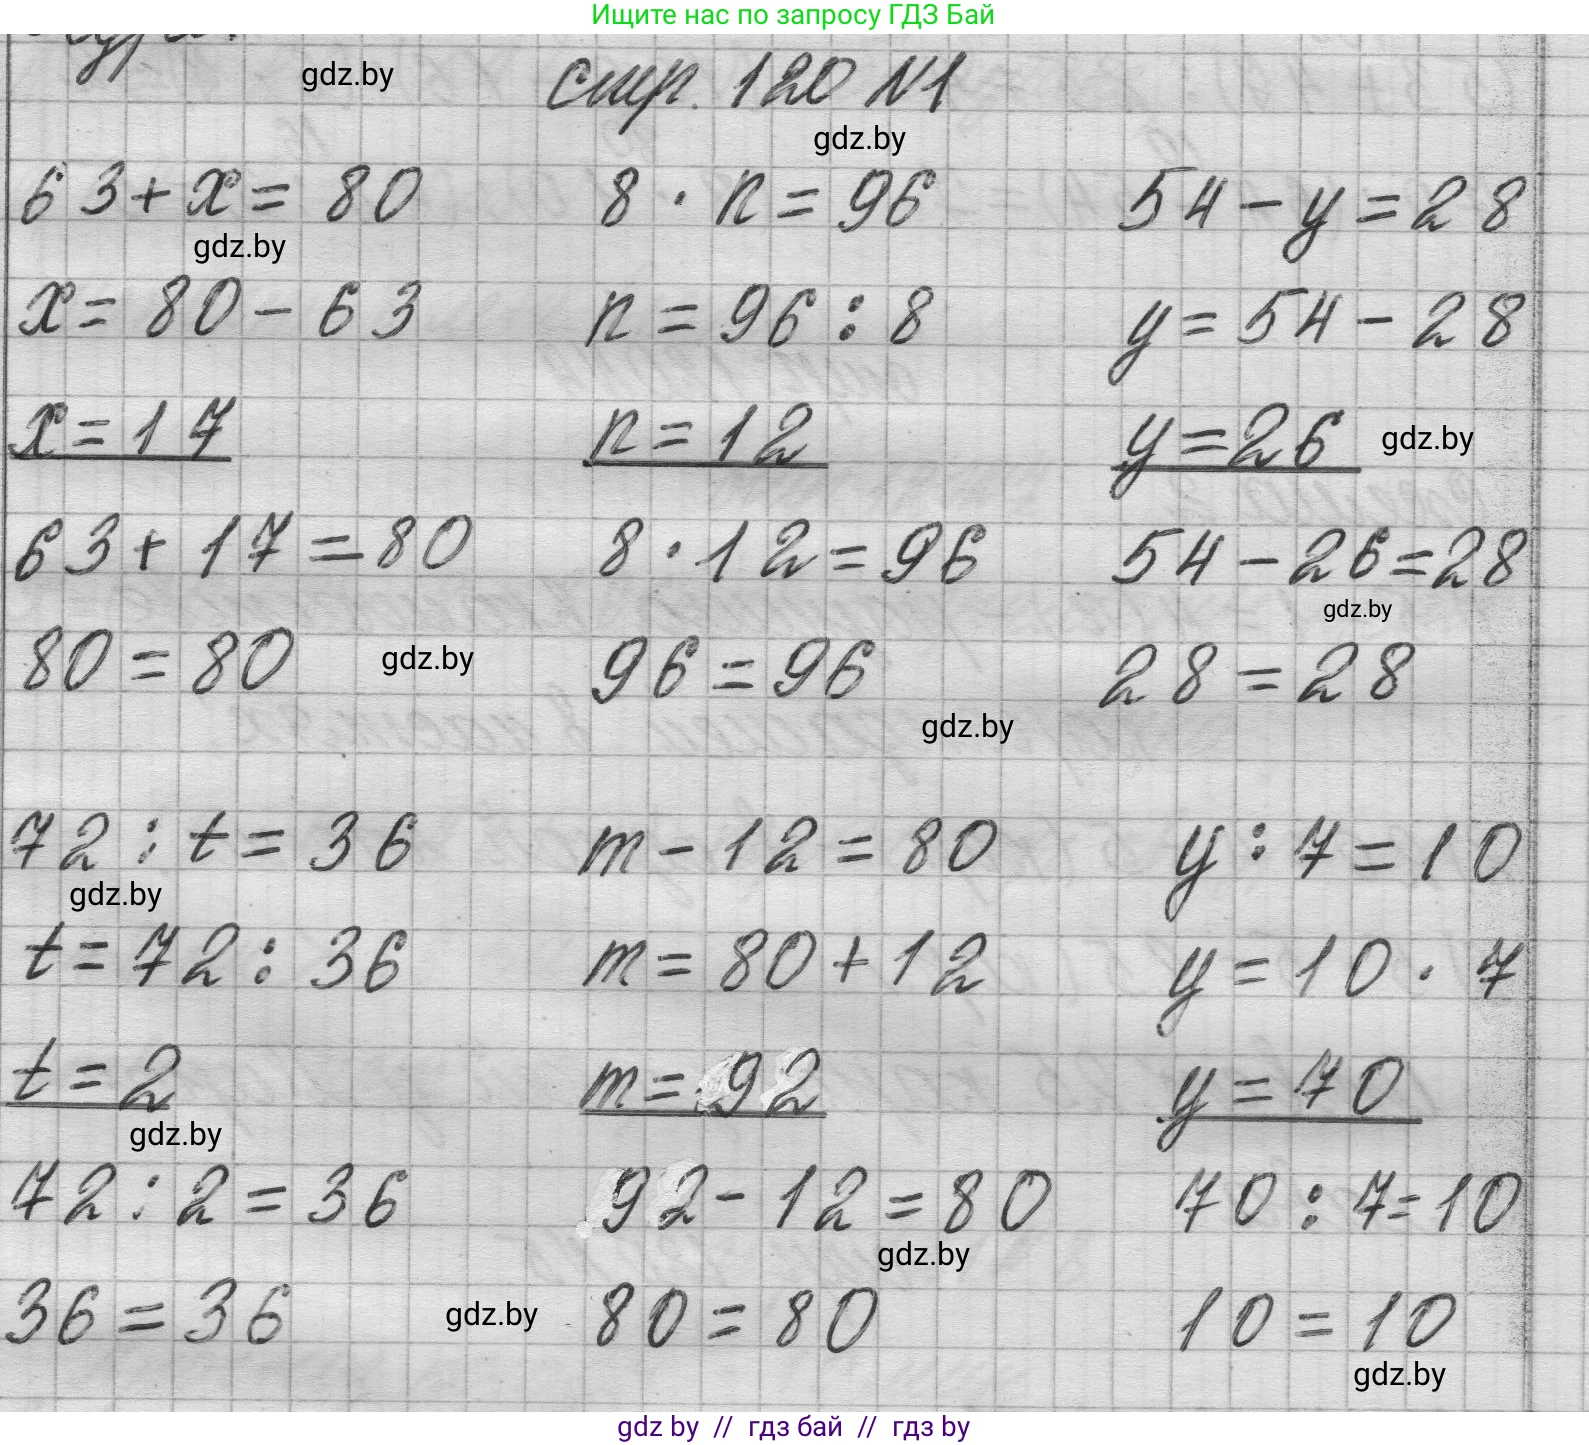 Ищите нас по запросу ГДЗ Бай
gdz.by
стр. 120 №1
gdz.by
63+x=80 8·n=96 54-y=28
gdz.by
x=80-63 n=96:8 y=54-28
x=17 n=12 y=26 gdz.by
63+17=80 8·12=96 54-26=28
gdz.by
80=80 gdz.by 96=96 28=28
gdz.by
72:t=36 m-12=80 y:7=10
gdz.by
t=72:36 m=80+12 y=10·7
t=2 m=92 y=70
gdz.by
72:2=36 92-12=80 70:7=10
gdz.by
36=36 gdz.by 80=80 10=10
gdz.by
gdz by // гдз бай // гдз by